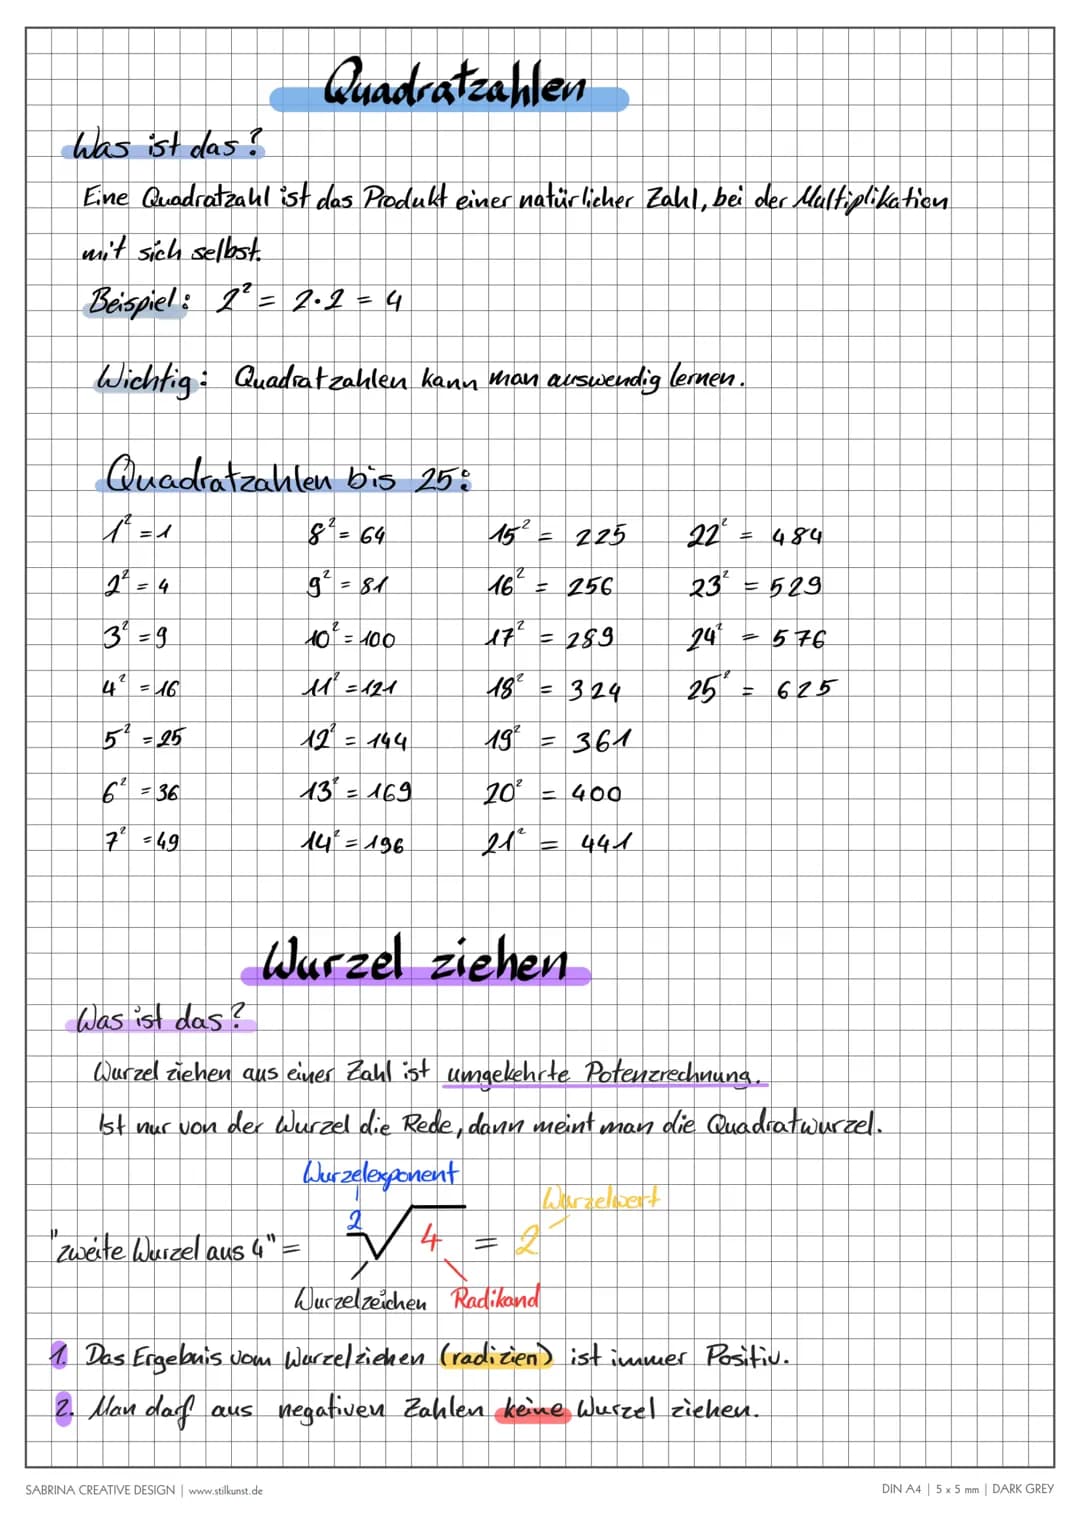 Quadratzahlen
Was ist das?
Eine Quadratzahl ist das Produkt einer natürlicher Zahl, bei der Multiplikation
mit sich selbst.
Beispiel: 2² = 2·2 = 4
Wichtig: Quadratzahlen kann man auswendig lernen.
Quadratzahlen bis 25:
1² = 1 8² = 64 15² = 225 22² = 484
2² = 4 9² = 81 16² = 256 23² = 529
3² = 9 10² = 100 17² = 289 24² = 576
4² = 16 11² = 121 18² = 324 25² = 625
5² = 25 12² = 144 19² = 361
6² = 36 13² = 169 20² = 400
7² = 49 14² = 196 21² = 441
Wurzel ziehen
Was ist das?
Wurzel ziehen aus einer Zahl ist umgekehrte Potenzrechnung.
Ist nur von der Wurzel die Rede, dann meint man die Quadratwurzel.
Wurzelexponent
Wurzelwert
"zweite Wurzel aus 4" = ²√4 = 2
Wurzelzeichen Radikand
1. Das Ergebnis vom Wurzelziehen (radizien) ist immer Positiv.
2. Man darf aus negativen Zahlen keine Wurzel ziehen.
SABRINA CREATIVE DESIGN | www.stilkunst.de DIN A4 | 5 x 5 mm | DARK GREY